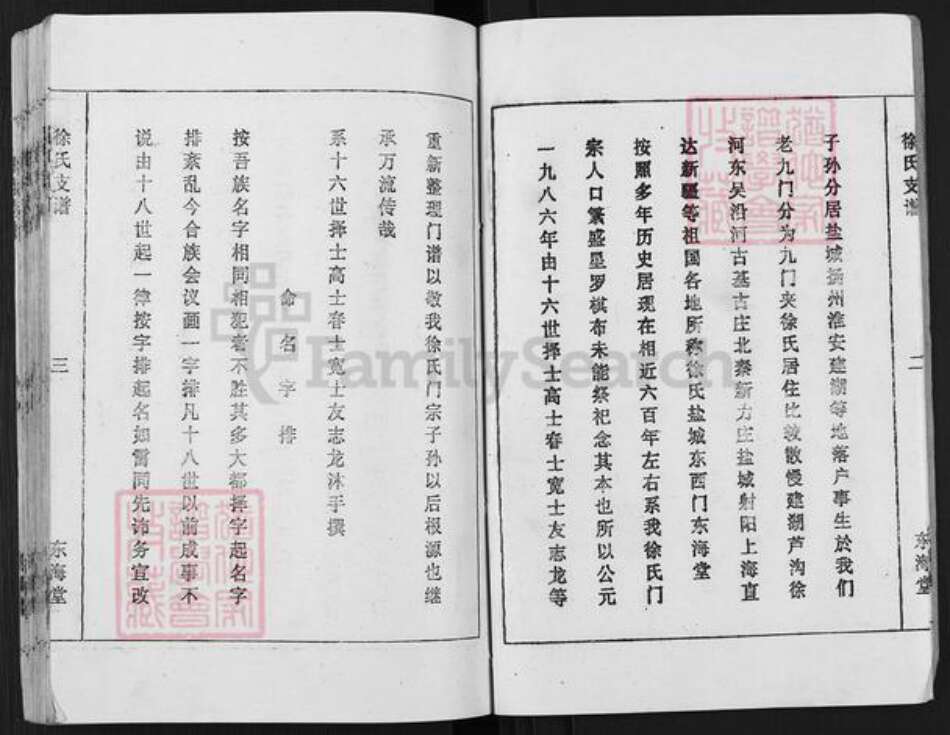 徐氏支谱
二
东海堂
子孙分居盐城扬州淮安建湖等地落户事生於我们
老九门分为九门夹徐氏居住比较散慢建湖芦沟徐
河东吴沿河古基古庄北秦新力庄盐城射阳上海直
达新疆等祖国各地所称徐氏盐城东西门东海堂
按照多年历史居现在相近六百年左右系我徐氏门
宗人口繁盛星罗棋布未能祭祀念其本也所以公元
一九八六年由十六世择士高士春士宽士友志龙等
重新整理门谱以敬我徐氏门宗子孙以后根源也继
承万流传哉
系十六世择士高士春士宽士友志龙沐手撰
命名字排
按吾族名字相同相犯毫不胜其多大都择字起名字
排紊乱今合族会议画一字排凡十八世以前成事不
说由十八世起一律按字排起名如雷同先讳务宜改
徐氏支谱
三
东海堂
FamilySearch